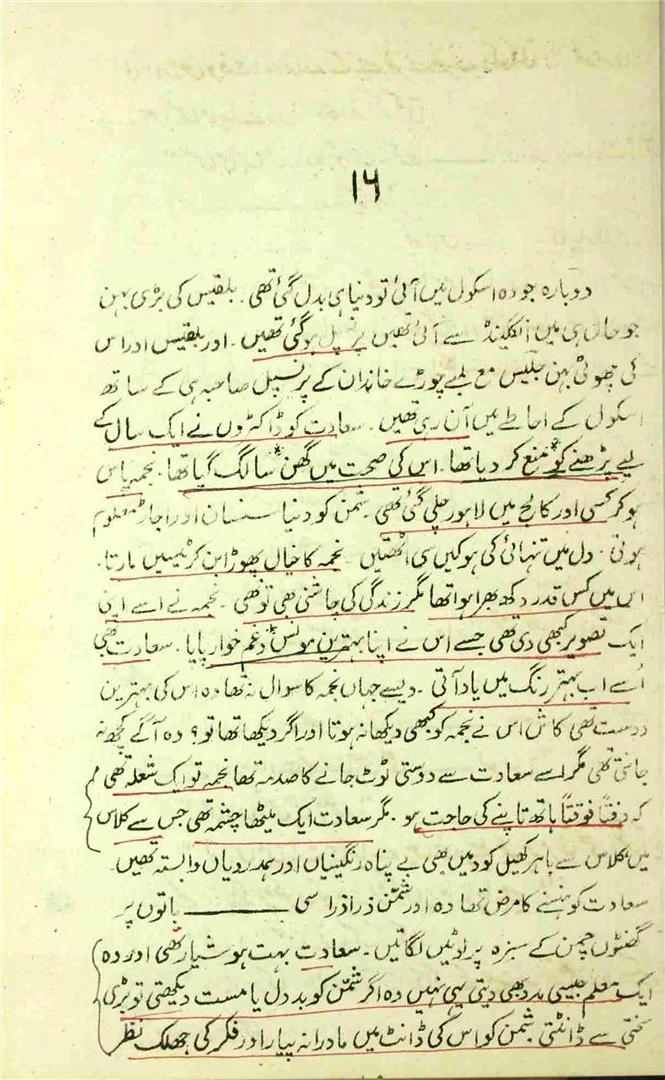 ۱۶
دوبارہ جو وہ اسکول میں آئی تو دنیا ہی بدل گئی تھی ۔ بلقیس کی بڑی بہن
جو حال ہی میں انگلینڈ سے آئی تھیں پرنسپل ہو گئی تھیں ۔ اور بلقیس اور اس
کی چھوٹی بہن جلیس مع لمبے چوڑے خاندان کے پرنسپل صاحبہ ہی کے ساتھ
اسکول کے احاطے میں آن رہی تھیں ۔ سعادت کو ڈاکٹروں نے ایک سال کے
لیے پڑھنے کو منع کر دیا تھا ۔ اس کی صحت میں گھن سا لگ گیا تھا ۔ نجمہ پاس
ہو کر کسی اور کالج میں لاہور چلی گئی تھی ۔ شمن کو دنیا سنسان اور اجاڑ معلوم
ہوتی ۔ دل میں تنہائی کی ہوکیں سی اٹھتیں ۔ نجمہ کا خیال پھوڑا بن کر ٹیسیں مارتا ۔
اس میں کس قدر دکھ بھرا ہوا تھا مگر زندگی کی چاشنی بھی تو تھی ۔ نجمہ نے اسے اپنی
ایک تصویر کبھی دی تھی جسے اس نے اپنا بہترین مونس و غم خوار پایا ۔ سعادت بھی
اُسے اب بہتر رنگ میں یاد آتی ۔ ویسے جہاں نجمہ کا سوال نہ تھا وہ اس کی بہترین
دوست تھی کاش اس نے نجمہ کو کبھی دیکھا نہ ہوتا اور اگر دیکھا تھا تو ؟ وہ آگے کچھ نہ
جانتی تھی مگر اسے سعادت سے دوستی ٹوٹ جانے کا صدمہ تھا نجمہ تو ایک شعلہ تھی
کہ وقتاً فوقتاً ہاتھ تاپنے کی حاجت ہو ۔ مگر سعادت ایک میٹھا چشمہ تھی جس سے کلاس
میں کلاس سے باہر کھیل کود میں بھی بے پناہ رنگینیاں اور ہمدردیاں وابستہ تھیں ۔
سعادت کو ہنسنے کا مرض تھا وہ اور شمن ذرا ذرا سی ——— باتوں پر
گھنٹوں چمن کے سبزہ پر لوٹیں لگاتیں ۔ سعادت بہت ہوشیار تھی اور وہ
ایک معلم جیسی مدد بھی دیتی یہی نہیں وہ اگر شمن کو بد دل یا سست دیکھتی تو بڑی
سختی سے ڈانٹتی شمن کو اس کی ڈانٹ میں مادرانہ پیار اور فکر کی جھلک نظر